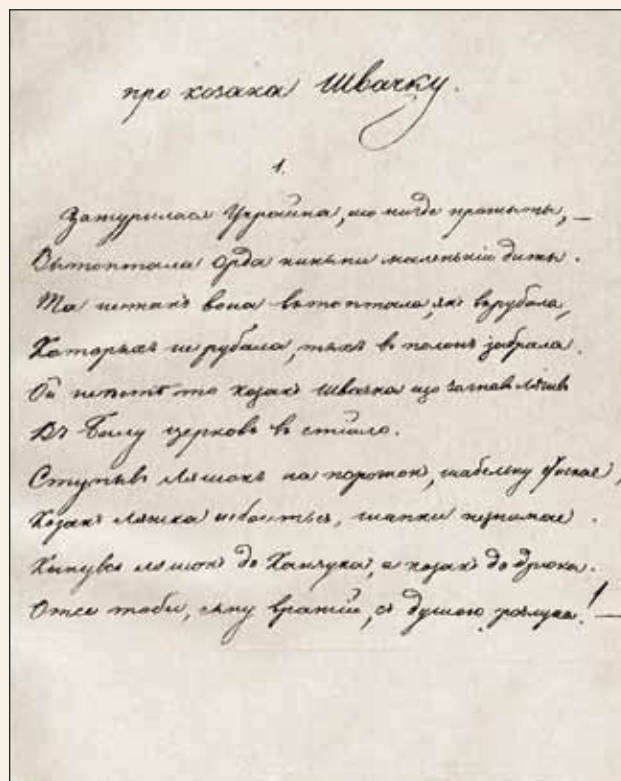 про козака Швачку.
1.
Зажурилася Украйна, що нигде прожыты, —
Вытоптала орда киньми маленькіи диты.
Та нетакъ вона вытоптала, як вырубала,
Которыхъ не рубала, тыхъ в полонъ забрала.
Ой то козакъ Швачка що загнав ляхив
Въ Билу церковь в стійло.
Ступывъ ляшокъ на порожок, шабельку
Козакъ ляшка небоиться, шапки незнимае.
Кынувсь ляшокъ до Канчука, а козакъ до дрюка.
Отсе тоби, сыну вражій, съ душою розлука! —